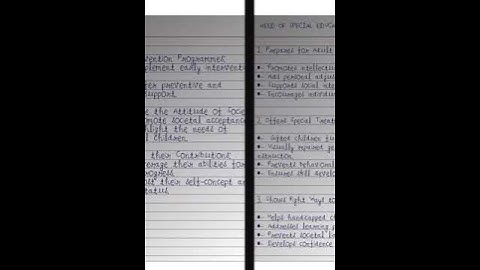 vention Programmes
plement early interventi
fer preventive and
support
e the Attitude of Soc
omote societal acceptance
hlight the needs of
l children
their Contributions
erage their abilities for
rogress
ost their self-concept an
status
NEED OF SPECIAL EDUCA
1. Prepares for Adult
Promotes intellectu
Aids personal adjus
Supports social inte
Encourages individu
2. Offers Special Treat
Gifted children fu
Visually impaired ge
instruction
Prevents Behavioral
Ensures skill develo
3. Shows Right Ways to
Helps handicapped ch
Addresses learning p
Prevents societal ba
Develops confidence